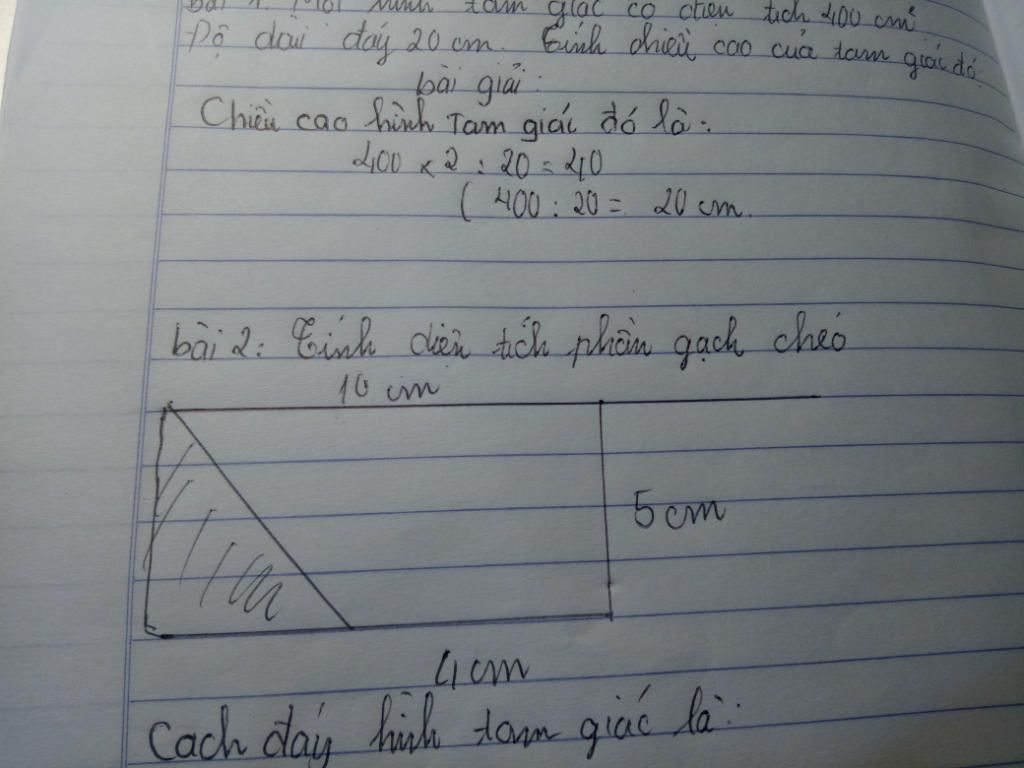 bài 1. Một hình tam giác có diện tích 400 cm²
Độ dài đáy 20 cm. Tính chiều cao của tam giác đó.
bài giải:
Chiều cao hình Tam giác đó là:
400 x 2 : 20 = 40
( 400 : 20 = 20 cm.
bài 2: Tính diện tích phần gạch chéo
10 cm
5 cm
4 cm
Cach đáy hình tam giác là: